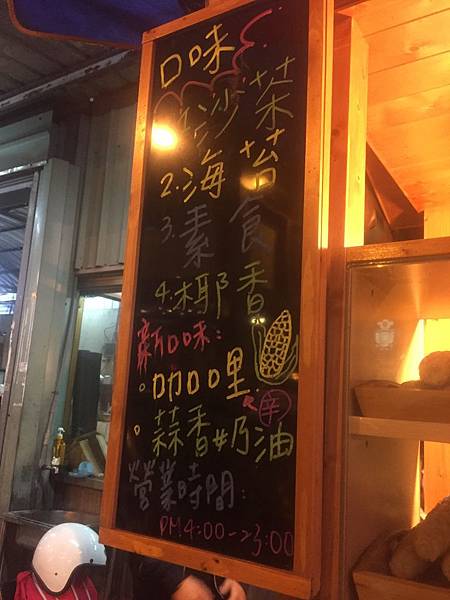 口味
1.沙茶
2.海苔
3.素食
4.椰香
新口味:
。咖哩
辛
。蒜香奶油
營業時間:
PM4:00-23:00